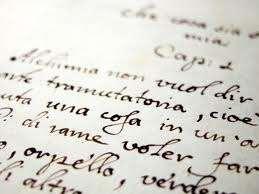 che cosa sia d
mia.
Cap: 1
Alchimia non vuol dir
arte tramutatoria, cioè
uta una cosa in un'a
di rame voler far
, orpello, verder
di altra